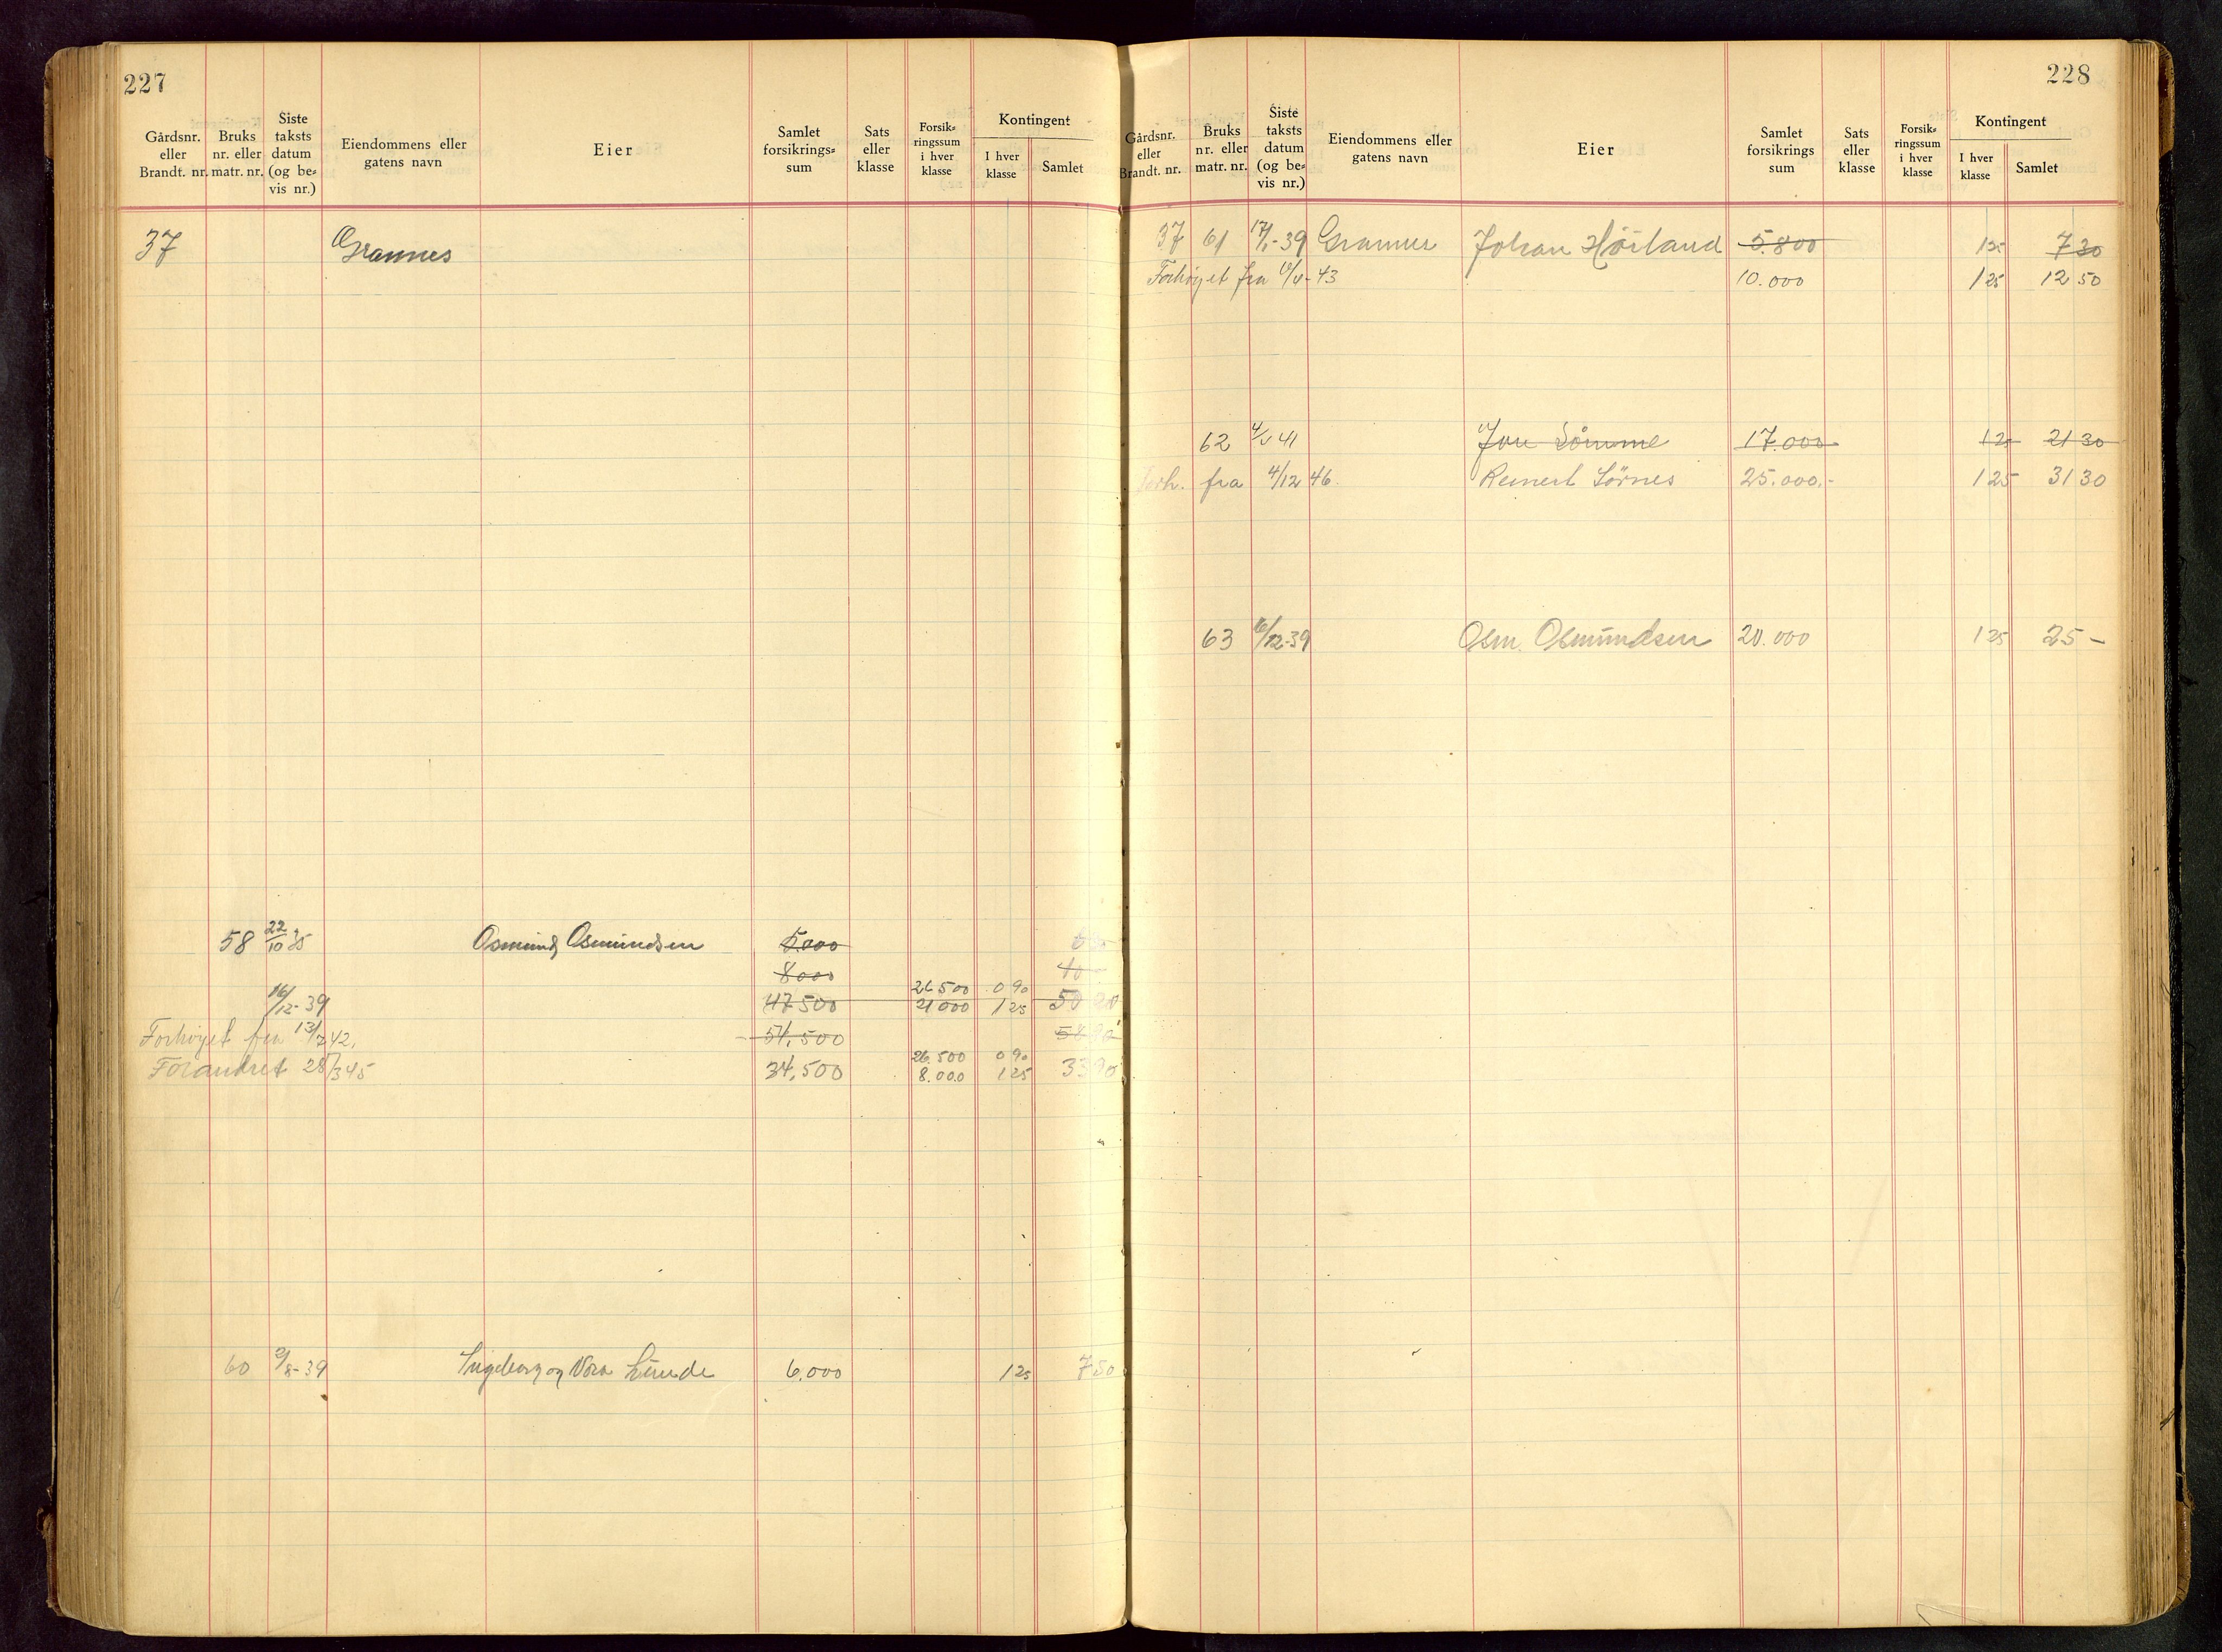 227
Gårdsnr. eller Brandt. nr. Bruks nr. eller matr. nr. Siste taksts datum (og bevis nr.) Eiendommens eller gatens navn Eier Samlet forsikrings=sum Sats eller klasse Forsik=ringssum i hver klasse Kontingent I hver klasse Samlet
37 Grannes
58 22/10 35 Osmund Osmundsen 5.000
8000 40
16/12-39 47500 26.500 0 90 50 20
21000 1 25
Forhøyet fra 13/7 42. 54.500
Forandret 28/3 45 34,500 26.500 0 90 33 90
8.000 1 25
60 9/8-39 Ingeborg og Nora Lunde 6.000 1 25 7 50
228
Gårdsnr. eller Brandt. nr. Bruks nr. eller matr. nr. Siste taksts datum (og be=vis nr.) Eiendommens eller gatens navn Eier Samlet forsikrings sum Sats eller klasse Forsik=ringssum i hver klasse Kontingent I hver klasse Samlet
37 61 17/1-39 Grannes Johan Høiland 5.800 1 25 7 30
Forhøyet fra -43 10.000 1 25 12 50
62 41 Jon Sömme 17.000 1 25 21 30
Forh. fra 4/12 46. Reinert Sörnes 25.000.- 1 25 31 30
63 16/12-39 Osm. Osmundsen 20.000 1 25 25 -